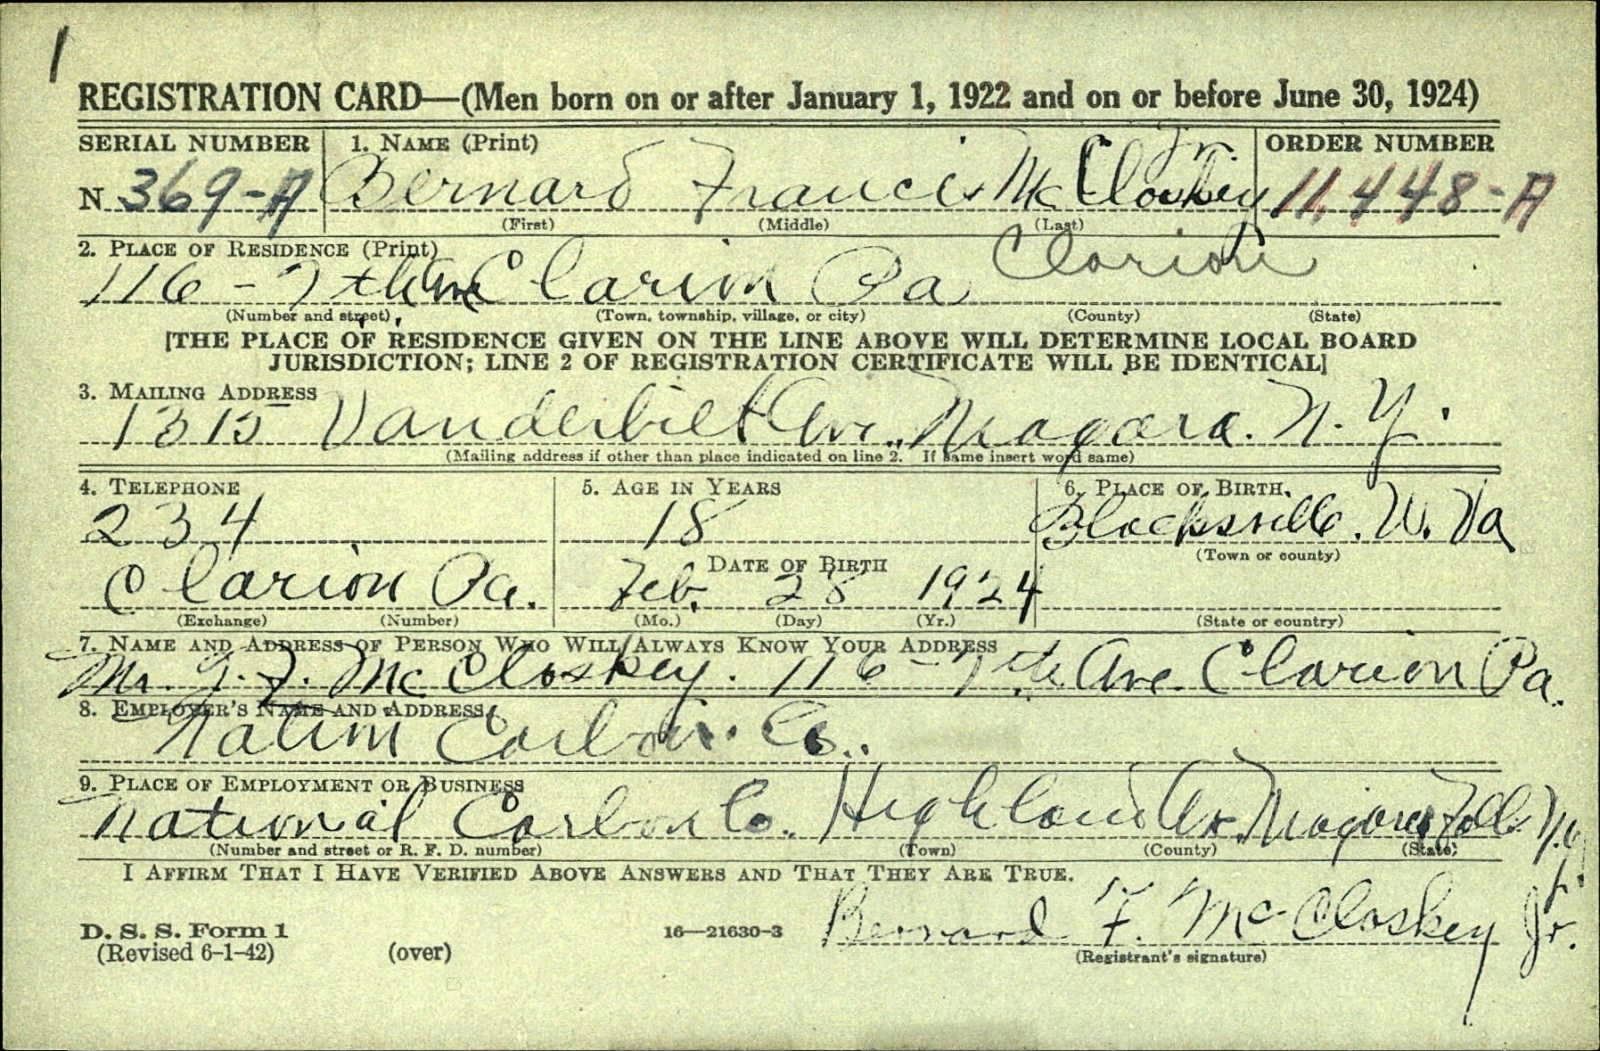 1
REGISTRATION CARD—(Men born on or after January 1, 1922 and on or before June 30, 1924)
SERIAL NUMBER 1. NAME (Print) ORDER NUMBER
N 369-A Bernard Francis McCloskey Jr. 11,448-A
(First) (Middle) (Last)
2. PLACE OF RESIDENCE (Print)
116 - 7th Ave Clarion Pa Clarion
(Number and street) (Town, township, village, or city) (County) (State)
[THE PLACE OF RESIDENCE GIVEN ON THE LINE ABOVE WILL DETERMINE LOCAL BOARD
JURISDICTION; LINE 2 OF REGISTRATION CERTIFICATE WILL BE IDENTICAL]
3. MAILING ADDRESS
1315 Vanderbilt Ave., Niagara. N. Y.
(Mailing address if other than place indicated on line 2. If same insert word same)
4. TELEPHONE 5. AGE IN YEARS 6. PLACE OF BIRTH
234 18 Blacksville. W. Va
(Town or county)
DATE OF BIRTH
Clarion Pa. Feb. 28 1924
(Exchange) (Number) (Mo.) (Day) (Yr.) (State or country)
7. NAME AND ADDRESS OF PERSON WHO WILL ALWAYS KNOW YOUR ADDRESS
Mr. F. McCloskey. 116 - 7th Ave. Clarion Pa.
8. EMPLOYER'S NAME AND ADDRESS
Carbon Co.
9. PLACE OF EMPLOYMENT OR BUSINESS
National Carbon Co. Highland Av. Niagara Falls N.Y.
(Number and street or R. F. D. number) (Town) (County) (State)
I AFFIRM THAT I HAVE VERIFIED ABOVE ANSWERS AND THAT THEY ARE TRUE.
D. S. S. Form 1 16—21630-3 Bernard F. McCloskey Jr.
(Revised 6-1-42) (over) (Registrant's signature)